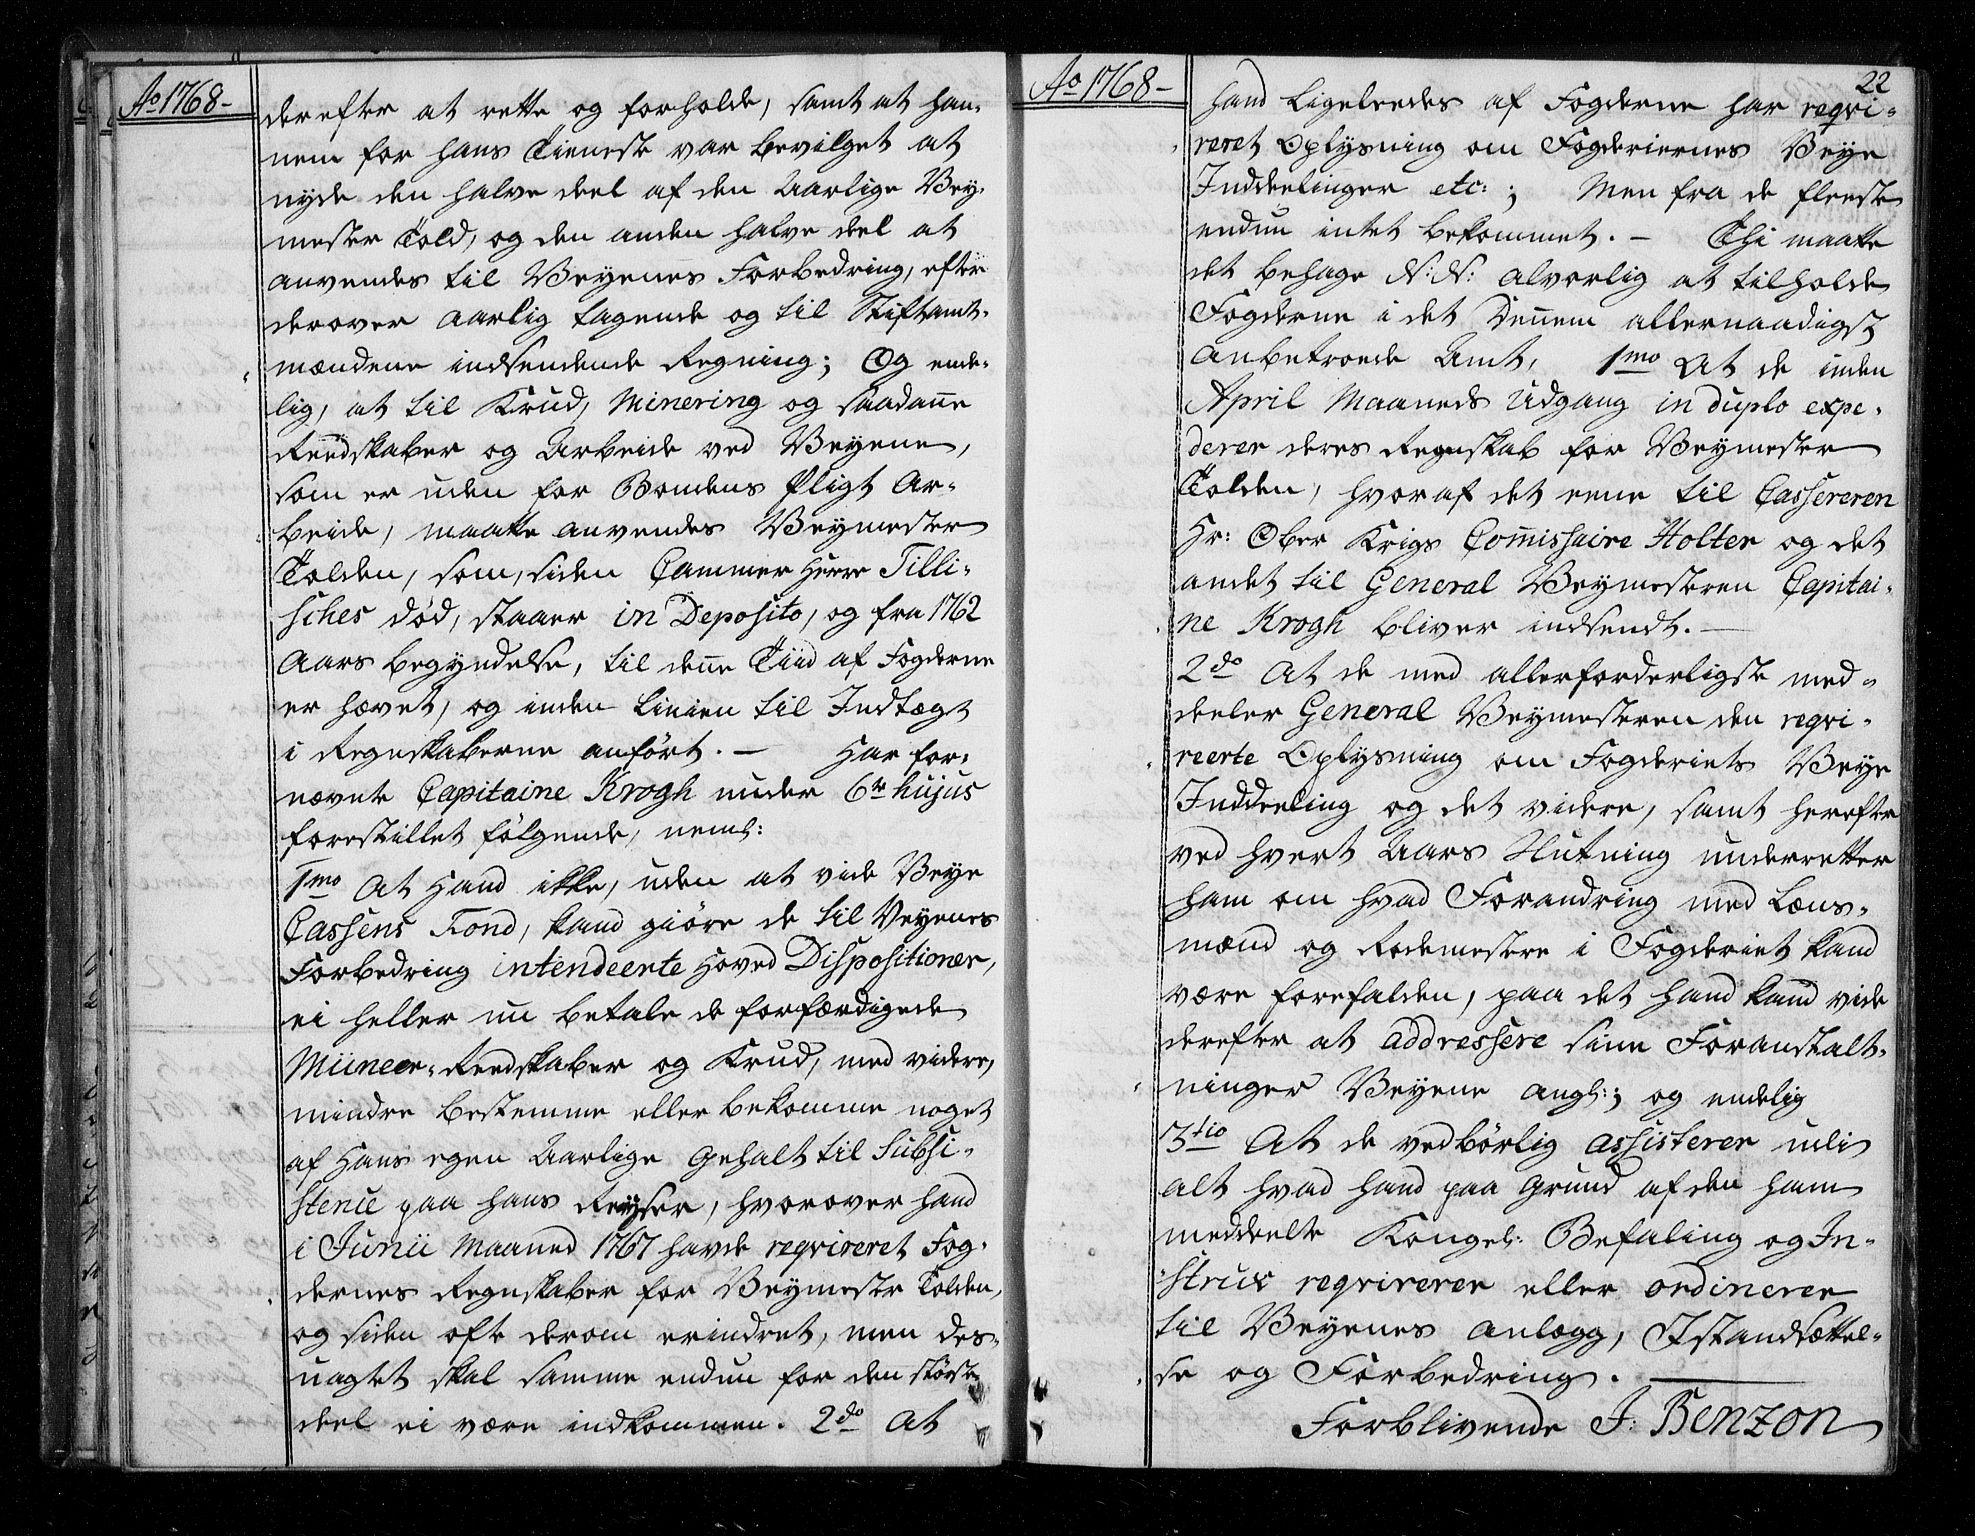 Ao 1768-
derefter at rette og forholde, samt at han-
nem for hans Tieneste var bevilget at
nyde den halve deel af den Aarlige Vey-
mester Told, og den anden halve deel at
anvendes til Veyenes Forbedring, efter
derover aarlig tagende og til Stiftamt-
mændene indsendende Regning; Og ende-
lig, at til Krud, Minering og saadanne
Reedskaber og Arbeide ved Veyene,
som er uden for Bondens Pligt Ar-
beide, maatte anvendes Veymester
Tolden, som, siden Cammer Herre Tilli-
sches død, staaer in Deposito, og fra 1762
Aars begyndelse, til denne Tiid af Fogderne
er hævet, og inden Linien til Indtægt
i Regnskaberne anført. — Har for-
nævnte Capitaine Krogh under 6te hujus
forestillet følgende, neml:
1mo At Hand ikke, uden at vide Veye
Cassens Fond, kand giöre de til Veyenes
Forbedring intendeerte Hoved Dispositioner,
ei heller nu betale de forfærdigede
Miineer-Reedskaber og Krud, med videre,
mindre bestemme eller bekomme noget
af Hans egen Aarlige Gehalt til Subsi-
stence paa hans Reyser, hvorover hand
i Junii Maaned 1767 havde reqvireret Fog-
dernes Regnskaber for Veymester Tolden,
og siden ofte derom erindret, men des-
uagtet skal samme endnu for den störste
deel ei være indkommen. 2do At
22
Ao 1768-
hand Ligeleedes af Fogderne har reqvi-
reret Oplysning om Fogderiernes Veye
Inddeelinger etc:; Men fra de fleeste
endnu intet bekommet. — Thi maatte
det behage N:N: alvorlig at tilholde
Fogderne i det Dennem allernaadigst
anbetroede Amt, 1mo At de inden
April Maaneds Udgang in duplo expe-
derer deres Regnskab for Veymester
Tolden, hvoraf det eene til Cassereren
Hr: Ober Krigs Commissaire Holter og det
andet til General Veymesteren Capitai-
ne Krogh bliver indsendt. —
2do At de med allerforderligste med-
deeler General Veymesteren den reqvi-
reerte Oplysning om Fogderiets Veye
Inddeeling og det videre, samt herefter
ved hvert Aars Slutning underretter
ham om hvad Forandring med Læns-
mænd og Rodemestere i Fogderiet kand
være forefalden, paa det hand kand vide
derefter at addressere sine Foranstalt-
ninger Veyene angl:; og endelig
3tio At de vedbörlig assisterer udi
alt hvad hand paa Grund af den ham
meddeelte Kongel: Befaling og In-
strux reqvirerer eller ordinerer
til Veyenes anlægg, Istandsættel-
se og Forbedring. —
Forblivende J: Benzon